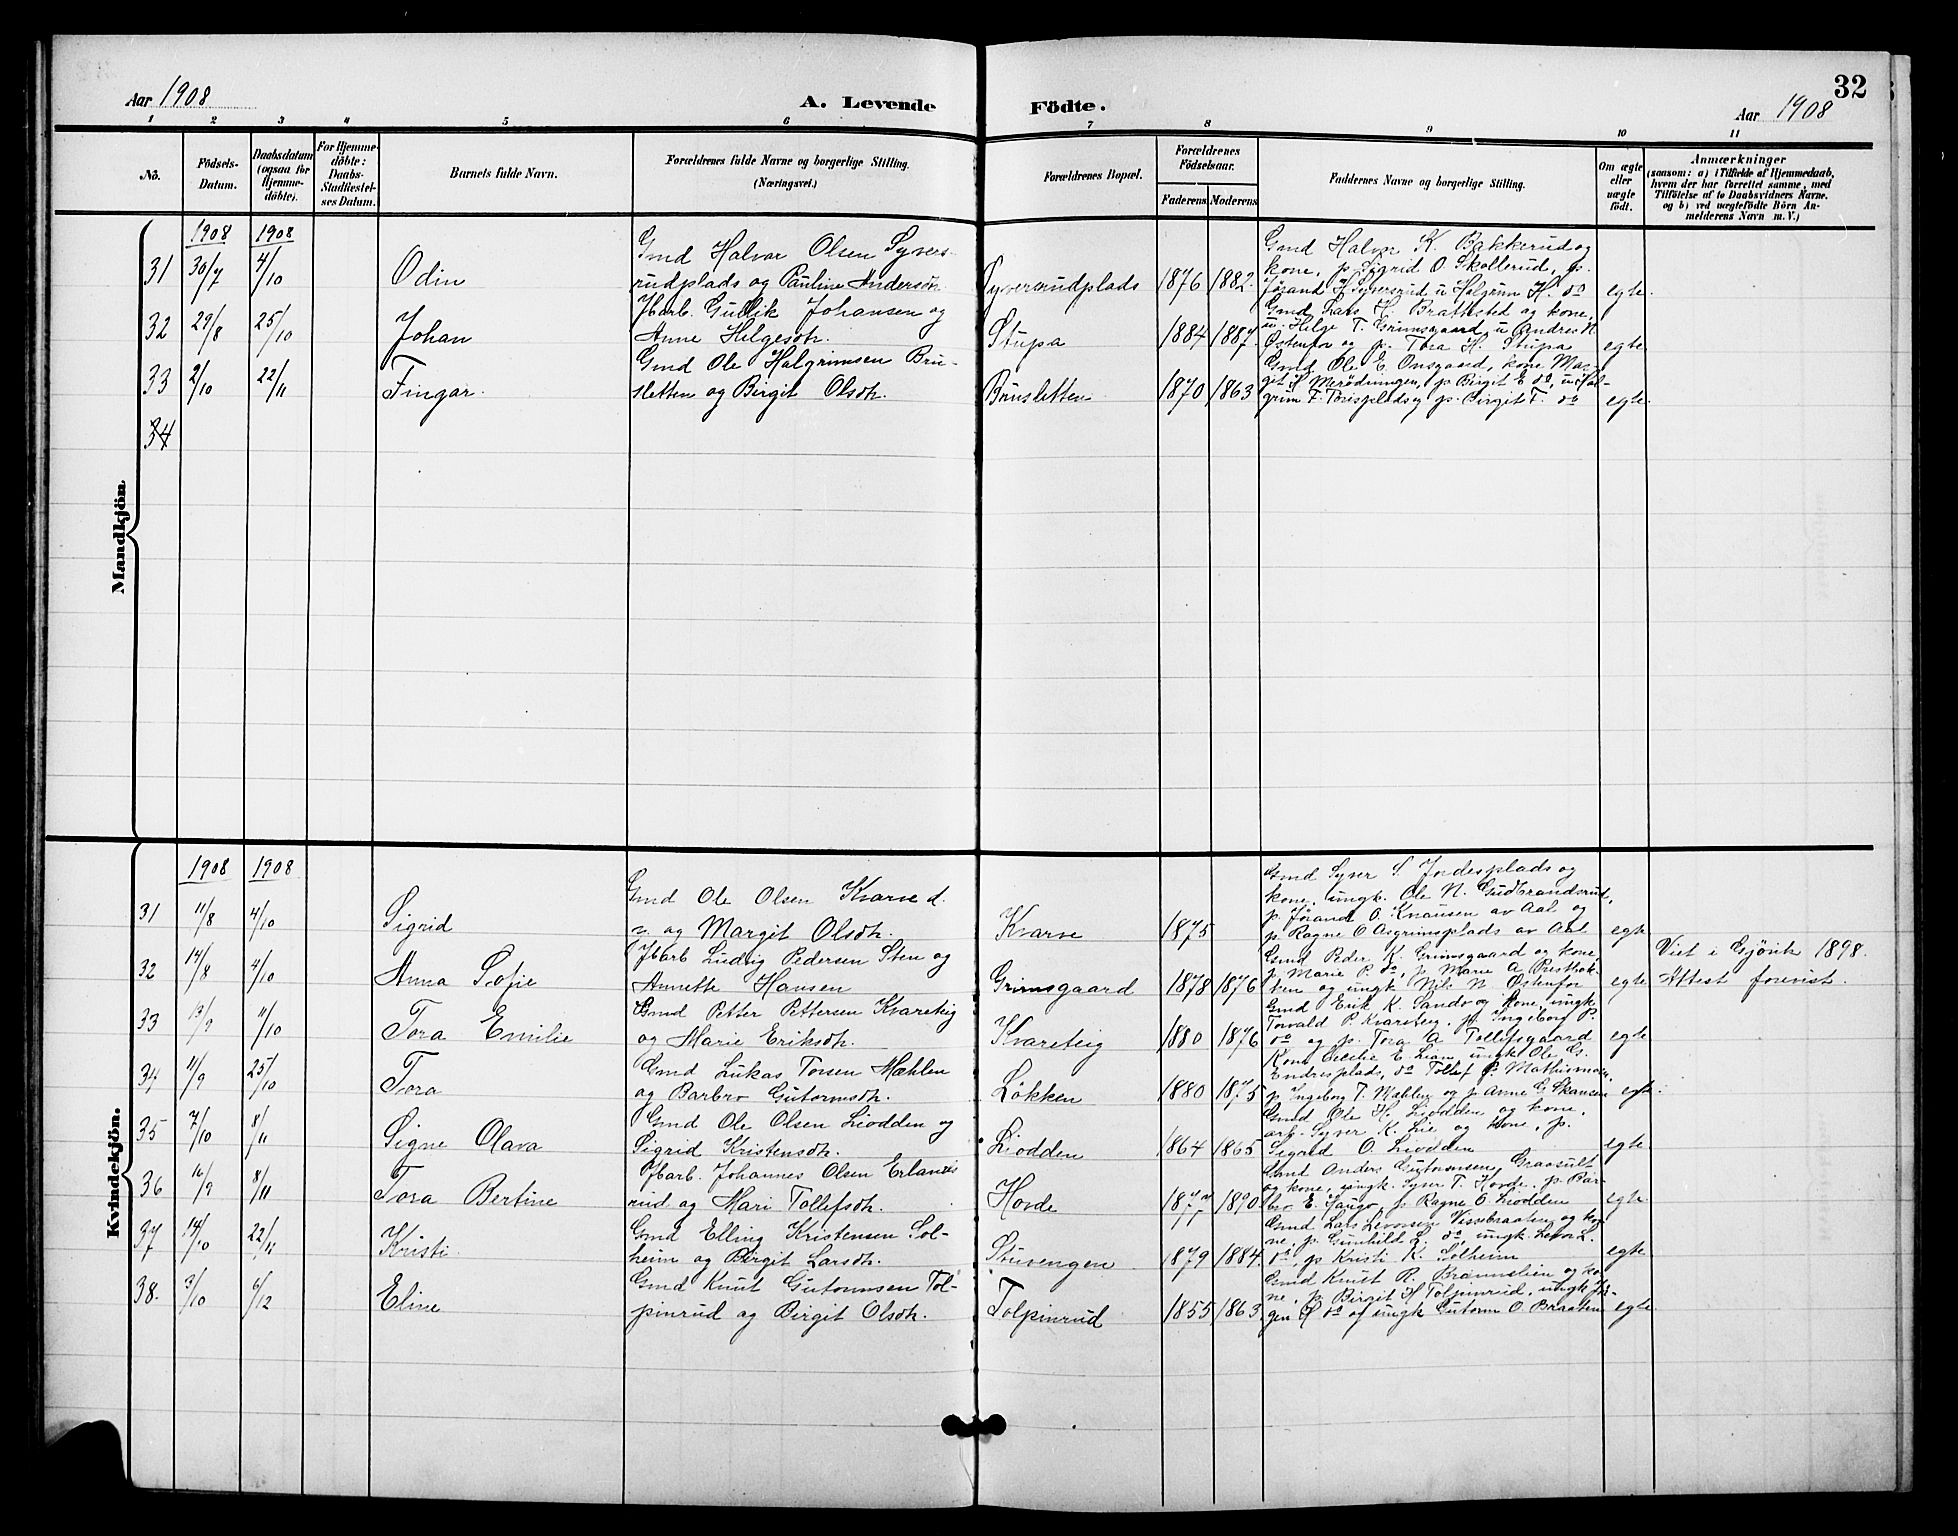 Aar 1908
A. Levende
Födte.
Aar 1908
32
1 2 3 4 5 6 7 8 9 10 11
No.
Födsels-
Datum.
Daabsdatum
(ogsaa for
Hjemme-
döbte).
For Hjemme-
döbte:
Daabs-
Stadfæstel-
ses Datum.
Barnets fulde Navn.
Forældrenes fulde Navne og borgerlige Stilling.
(Næringsvei.)
Forældrenes Bopæl.
Forældrenes
Födselsaar.
Faderens Moderens
Faddernes Navne og borgerlige Stilling.
Om ægte
eller
uægte
födt.
Anmærkninger
(saasom: a) i Tilfælde af Hjemmedaab,
hvem der har forrettet samme, med
Tilföielse af to Daabsvidners Navne.
og b) ved uægtefödte Börn An-
melderens Navn m. V.)
Mandkjön
1908 1908
31 30/7 4/10 Odin
Gmd Halvar Olsen Syvers-
rudplads og Pauline Andersdtr.
Syversrudplads 1876 1882
Gmd Halvor K. Bakkerud og
kone, p. Sigrid O. Skollerud, p.
Jørand H Syversrud, u Halgrim H. do
egte.
32 29/8 25/10 Johan
Jfarb. Gullik Johansen og
Anne Helgesdtr.
Stupa 1884 1887
Gmd Lars H. Brathsted og kone,
u. Helge T. Grimsgaard, u Andres N.
Østenfor og p. Tora H. Stupa
egte
33 2/10 22/11 Fingar.
Gmd Ole Halgrimsen Bru-
sletten og Birgit Olsdtr.
Brusletten 1870 1863
Gmd Ole E. Onsgaard, kone Mar-
git S Merødningen, p Birgit E do, u Hal-
grim F. Torispladseg p. Birgit T. do
egte
34
Kvindekjön.
1908 1908
31 11/8 4/10 Sigrid
Gmd Ole Olsen Kvarve d.
y. og Margit Olsdtr.
Kvarve 1875
Gmd Syver S. Jordesplads og
kone, ungk. Ole N. Gudbrandsrud,
p. Jørand O. Knausen av Aal og
p. Ragne O Asgrimsplads av Aal
egte
32 14/8 4/10 Anna Sofie
Jfarb Ludvig Pedersen Sten og
Annette Hansen
Grimsgaard 1878 1876
Gmd Peder K. Grimsgaard og kone,
p. Marie P. do, p Marie A Presthok-
ten og ungk Nils N Østenfor
egte
Viet i Gjövik 1898.
Attest forevist.
33 13/9 11/10 Tora Emilie
Gmd Petter Pettersen Kvareteig
og Marie Eriksdtr.
Kvareteig 1880 1876
Gmd Erik K. Sando og kone, ungk
Torvald P. Kvareteig, p Ingeborg P.
do og p. Tora A Tollefsgaard
egte
34 11/9 25/10 Tora
Gmd Lukas Torsen Mæhlen
og Barbro Gutormsdtr.
Løkken 1880 1875
Kone Cecilie E. Lian, ungk Ole G.
Endresplads, do Tollef P. Mathismoen,
p Ingeborg T. Mæhlen og p. Anne G. Skansen
egte.
35 7/10 8/11 Signe Olava
Gmd Ole Olsen Liodden og
Sigrid Kristensdtr.
Liodden 1864 1865
Gmd Ole H. Liodden og kone,
arb. Syver K. Lie og kone, p.
Sigrid O. Liodden
egte
36 16/9 8/11 Tora Bertine
Jfarb. Johannes Olsen Erlands-
rud og Mari Tollefsdtr.
Hovde 1877 1890
Gmd Anders Gutormsen Graasult
og kone, ungk. Syver T. Hovde, p. Bar-
bro E. Haugo, p Ragne O. Liodden
egte
37 14/10 22/11 Kristi.
Gmd Elling Kristensen Sol-
heim og Birgit Larsdtr.
Stuvengen 1879 1884
Gmd Lars Levorsen Vissebraaten og ko-
ne, p. Gunhild L. do, ungk. Levor L.
do, p Kristi K. Solheim
egte
38. 3/10 6/12 Eline
Gmd Knut Gutormsen Tol-
pinrud og Birgit Olsdtr.
Tolpinrud 1855 1863
Gmd Knut R. Brænnelien og ko-
ne, p. Birgit H Tolpinrud, ungk Jør-
gen H do og ungk Gutorm O. Braaten
egte